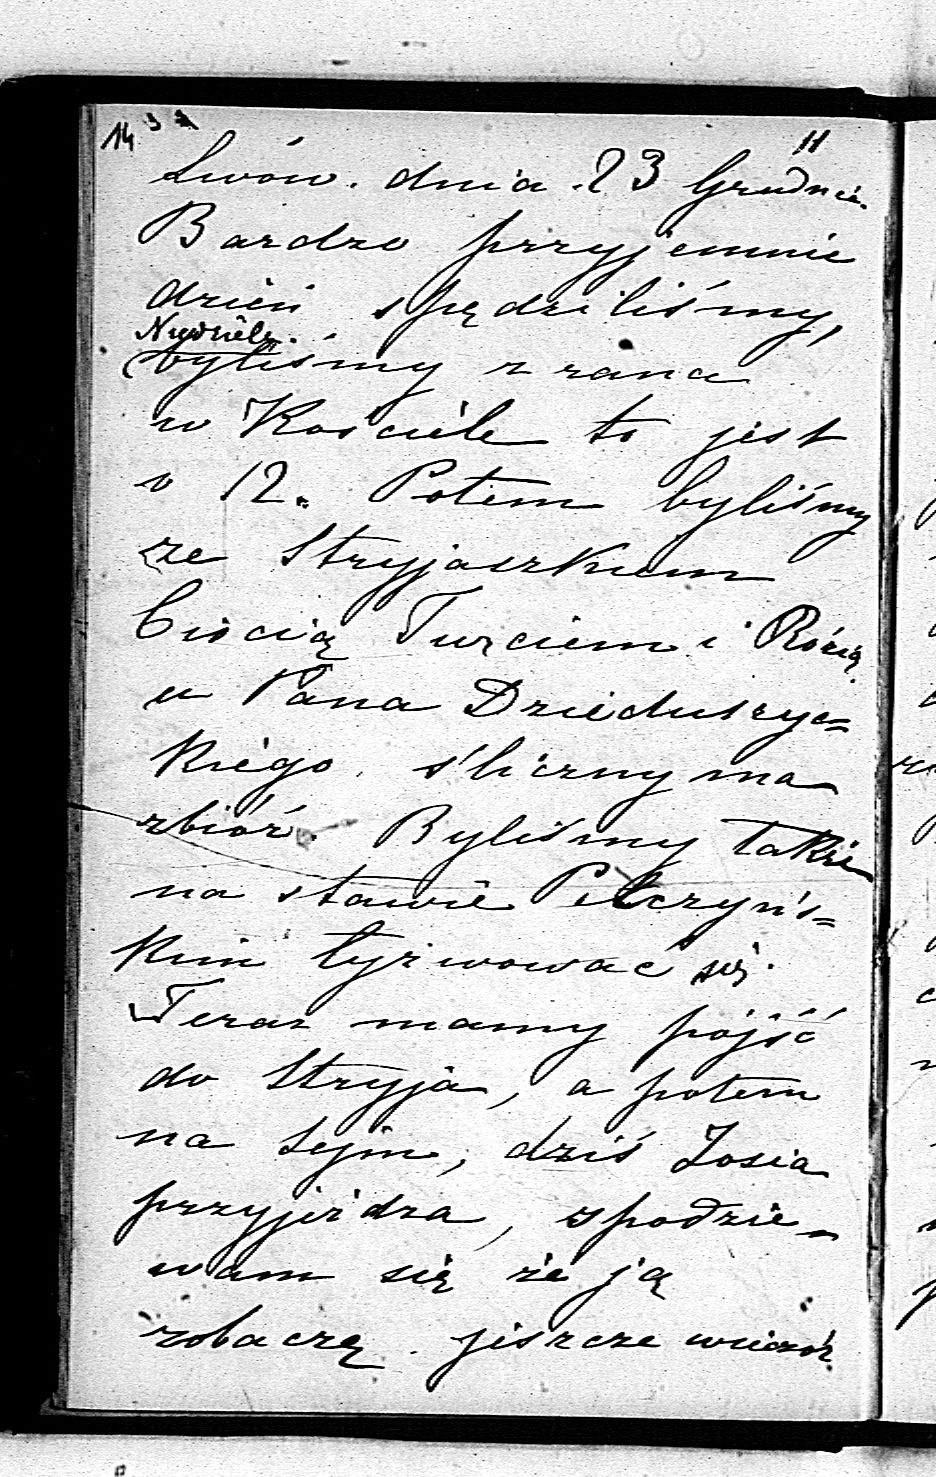 14
11
Lwów. dnia. 23 Grudnia.
Bardzo przyjemnie
dzień spędziliśmy,
Niedziela.
byliśmy z rana
w Kościele to jest
o 12. Potem byliśmy
ze Stryjaszkiem
Ciocią Turciem i Rózią
u Pana Dzieduszyc=
kiego. śliczny ma
zbiór. Byliśmy także
na stawie Pełczyńs=
kim łyżwować się.
Teraz mamy pójść
do Stryja, a potem
na Sejm, dziś Zosia
przyjeżdza, spodzie=
wam się że ją
zobaczę. jeszcze wieczór